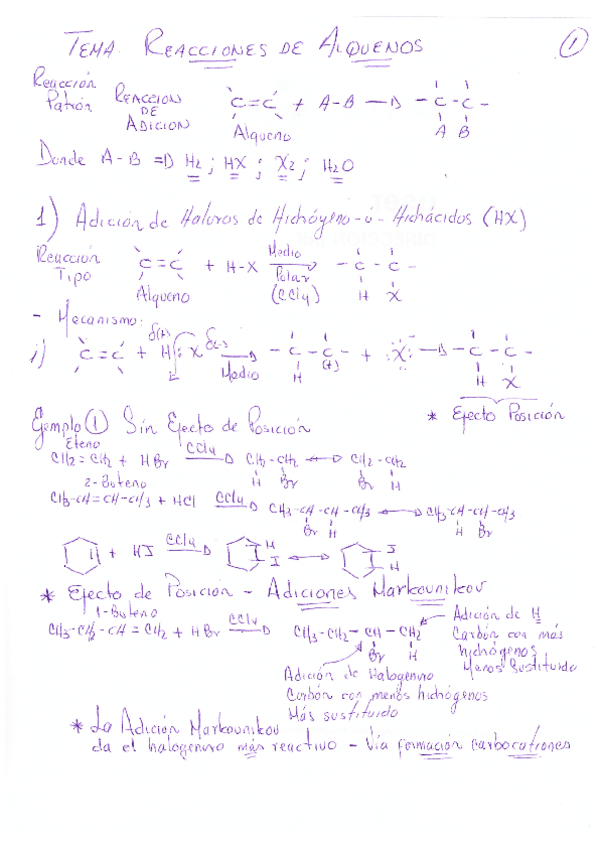 TEMA: REACCIONES DE ALQUENOS ①
Reacción Patrón REACCION DE ADICION C=C + A-B → -C-C-
Alqueno A B
Donde A-B ⇒ H2 ; HX ; X2 ; H2O
1) Adición de Haluros de Hidrógeno -ú- Hidrácidos (HX)
Reacción Tipo C=C + H-X Medio Polar (CCl4) → -C-C-
Alqueno H X
- Mecanismo:
i) C=C + δ(+) H : X δ(-) Medio → -C-C- (+) + :X: → -C-C-
H H X
* Efecto Posición
Ejemplo ① Sin Efecto de Posición
Eteno
CH2=CH2 + HBr CCl4 → CH2-CH2 ↔ CH2-CH2
H Br Br H
2-Buteno
CH3-CH=CH-CH3 + HCl CCl4 → CH3-CH-CH-CH3 ↔ CH3-CH-CH-CH3
Br H H Br
+ HI CCl4 → H I ↔ I H
* Efecto de Posición - Adiciones Markovnikov
1-Buteno
CH3-CH2-CH=CH2 + HBr CCl4 → CH3-CH2-CH-CH2
Br H
Adición de H
Carbón con más
hidrógenos
Menos Sustituido
Adición de Halogenuro
Carbón con menos hidrógenos
Más sustituido
* La Adición Markovnikov
da el halogenuro más reactivo - Vía formación carbocationes